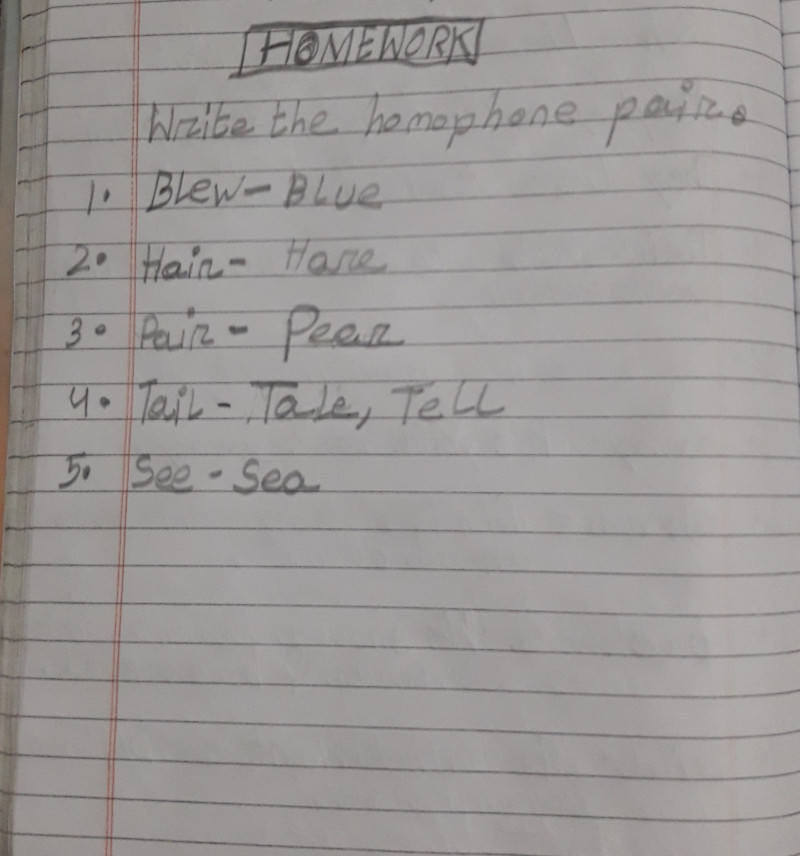 HOMEWORK
Write the homophone pair.
1. Blew - Blue
2. Hair - Hare
3. Pair - Pear
4. Tail - Tale, Tell
5. See - Sea